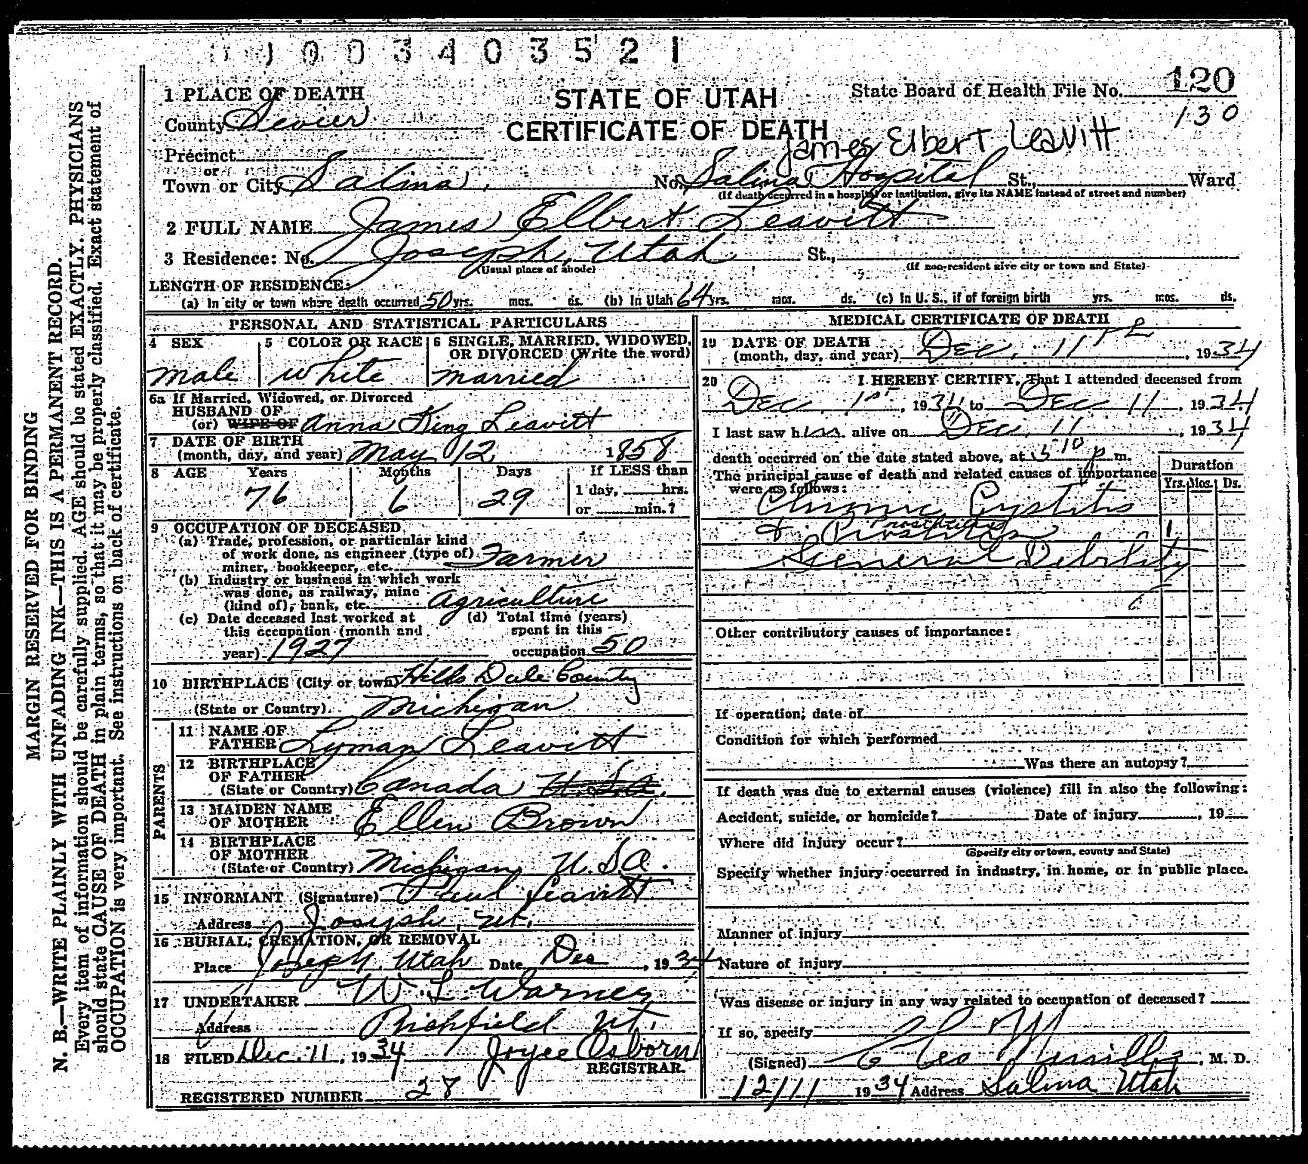 1003403521
120
130
1 PLACE OF DEATH
County Sevier
STATE OF UTAH
CERTIFICATE OF DEATH
State Board of Health File No.
James Elbert Leavitt
Precinct
or
Town or City Salina No. Salina Hospital St., Ward
(If death occurred in a hospital or institution, give its NAME instead of street and number)
2 FULL NAME James Elbert Leavitt
3 Residence: No. Joseph, Utah St.,
(Usual place of abode) (If non-resident give city or town and State)
LENGTH OF RESIDENCE:
(a) In city or town where death occurred 50 yrs. mos. ds. (b) In Utah 64 yrs. mos. ds. (c) In U. S., if of foreign birth yrs. mos. ds.
PERSONAL AND STATISTICAL PARTICULARS
4 SEX 5 COLOR OR RACE 6 SINGLE, MARRIED, WIDOWED, OR DIVORCED (Write the word)
male white married
6a If Married, Widowed, or Divorced
HUSBAND OF
(or) WIFE OF Anna King Leavitt
7 DATE OF BIRTH
(month, day, and year) May 12 1858
8 AGE Years Months Days If LESS than
76 6 29 1 day, hrs.
or min.?
9 OCCUPATION OF DECEASED
(a) Trade, profession, or particular kind
of work done, as engineer (type of)
miner, bookkeeper, etc. Farmer
(b) Industry or business in which work
was done, as railway, mine
(kind of), bank, etc. Agriculture
(c) Date deceased last worked at (d) Total time (years)
this occupation (month and spent in this
year) 1927 occupation 50
10 BIRTHPLACE (City or town) Hills Dale County
(State or Country) Michigan
PARENTS
11 NAME OF
FATHER Lyman Leavitt
12 BIRTHPLACE
OF FATHER
(State or Country) Canada U.S.A.
13 MAIDEN NAME
OF MOTHER Ellen Brown
14 BIRTHPLACE
OF MOTHER
(State or Country) Michigan, U.S.A.
15 INFORMANT (Signature) Paul Leavitt
Address Joseph, Ut.
16 BURIAL, CREMATION, OR REMOVAL
Place Joseph, Utah Date Dec , 1934
17 UNDERTAKER W. L. Warner
Address Richfield Ut.
18 FILED Dec. 11, 1934 Joyce Osborn
REGISTRAR.
REGISTERED NUMBER 28
MEDICAL CERTIFICATE OF DEATH
19 DATE OF DEATH
(month, day, and year) Dec. 11th, 1934
20 I HEREBY CERTIFY, That I attended deceased from
Dec 1st, 1934 to Dec 11, 1934
I last saw him alive on Dec 11, 1934
death occurred on the date stated above, at 5 10 p m.
The principal cause of death and related causes of importance
were as follows:
Duration
Yrs. Mos. Ds.
Chronic Cystitis
& Prostatitis 1
General Debility
Other contributory causes of importance:
If operation, date of
Condition for which performed
Was there an autopsy?
If death was due to external causes (violence) fill in also the following:
Accident, suicide, or homicide? Date of injury , 19
Where did injury occur?
(Specify city or town, county and State)
Specify whether injury occurred in industry, in home, or in public place.
Manner of injury
Nature of injury
Was disease or injury in any way related to occupation of deceased?
If so, specify
(Signed) , M. D.
12/11 1934 Address Salina Utah
MARGIN RESERVED FOR BINDING
N. B.—WRITE PLAINLY WITH UNFADING INK—THIS IS A PERMANENT RECORD.
Every item of information should be carefully supplied. AGE should be stated EXACTLY. PHYSICIANS
should state CAUSE OF DEATH in plain terms, so that it may be properly classified. Exact statement of
OCCUPATION is very important. See instructions on back of certificate.